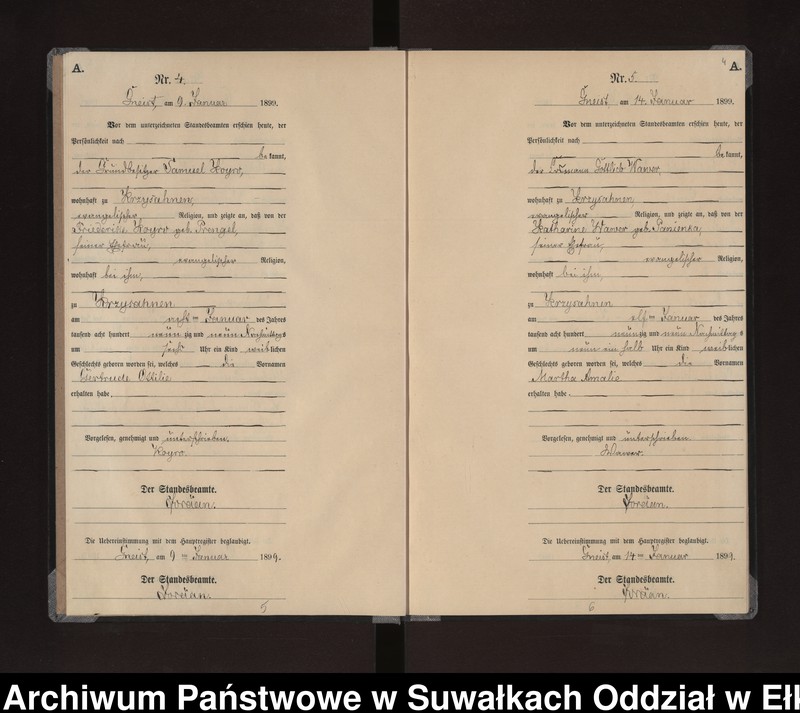 A.
Nr. 4.
Gneist, am 9. Januar 1899.
Vor dem unterzeichneten Standesbeamten erschien heute, der
Persönlichkeit nach
be kannt,
der Grundbesitzer Samuel Koyro,
wohnhaft zu Krzysahnen,
evangelischer Religion, und zeigte an, daß von der
Friederike Koyro geb. Prengel,
seiner Ehefrau,
evangelischer Religion,
wohnhaft bei ihm,
zu Krzysahnen
am acht ten Januar des Jahres
tausend acht hundert neun zig und neun Nachmittags
um sechs Uhr ein Kind weib lichen
Geschlechts geboren worden sei, welches die Vornamen
Gertrude Ottilie
erhalten habe.
Vorgelesen, genehmigt und unterschrieben.
Koyro.
Der Standesbeamte.
Die Uebereinstimmung mit dem Hauptregister beglaubigt.
Gneist, am 9 ten Januar 1899.
Der Standesbeamte.
5
4
A.
Nr. 5.
Gneist, am 14. Januar 1899.
Vor dem unterzeichneten Standesbeamten erschien heute, der
Persönlichkeit nach
be kannt,
der Gottlieb Wawer,
wohnhaft zu Krzysahnen,
evangelischer Religion, und zeigte an, daß von der
Katharine Wawer geb. Panienka,
seiner Ehefrau,
evangelischer Religion,
wohnhaft bei ihm,
zu Krzysahnen
am elf ten Januar des Jahres
tausend acht hundert neun zig und neun Nachmittag s
um neun ein halb Uhr ein Kind weib lichen
Geschlechts geboren worden sei, welches die Vornamen
Martha Amalie
erhalten habe.
Vorgelesen, genehmigt und unterschrieben
Wawer.
Der Standesbeamte.
Die Uebereinstimmung mit dem Hauptregister beglaubigt.
Gneist, am 14 ten Januar 1899.
Der Standesbeamte.
6
Archiwum Państwowe w Suwałkach Oddział w Ełk